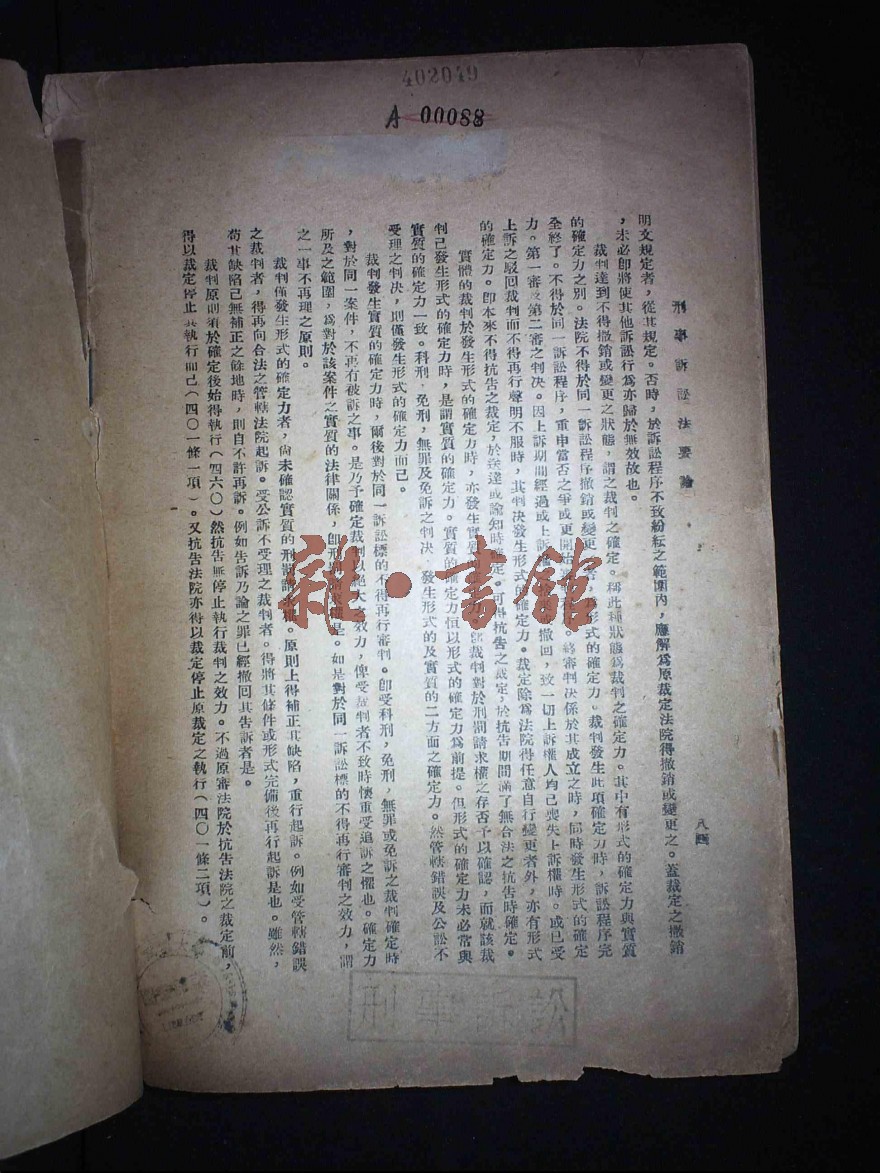 402049
A 00088
刑事訴訟法要論
八四
明文規定者，從其規定。否時，於訴訟程序不致紛紜之範圍內，應解爲原裁定法院得撤銷或變更之。蓋裁定之撤銷
，未必卽將使其他訴訟行爲亦歸於無效故也。
裁判達到不得撤銷或變更之狀態，謂之裁判之確定。稱此種狀態爲裁判之確定力。其中有形式的確定力與實質
的確定力之別。法院不得於同一訴訟程序撤銷或變更 者，爲形式的確定力。裁判發生此項確定力時，訴訟程序完
全終了。不得於同一訴訟程序，重申當否之爭或更開始 終審判決係於其成立之時，同時發生形式的確定
力。第一審及第二審之判決。因上訴期間經過或上訴 撤回，致一切上訴權人均已喪失上訴權時。或已受
上訴之駁回裁判而不得再行聲明不服時，其判決發生形式的確定力。裁定除爲法院得任意自行變更者外，亦有形式
的確定力。卽本來不得抗告之裁定，於送達或諭知時確定。可得抗告之裁定，於抗告期間滿了無合法之抗告時確定。
實體的裁判於發生形式的確定力時，亦發生實質 裁判對於刑罰請求權之存否予以確認，而就該裁
判已發生形式的確定力時，是謂實質的確定力。實質的確定力恒以形式的確定力爲前提。但形式的確定力未必常與
實質的確定力一致。科刑，免刑，無罪及免訴之判決，發生形式的及實質的二方面之確定力。然管轄錯誤及公訟不
受理之判決，則僅發生形式的確定力而已。
裁判發生實質的確定力時，爾後對於同一訴訟標的不得再行審判。卽受科刑，免刑，無罪或免訴之裁判確定時
，對於同一案件，不再有被訴之事。是乃予確定裁判以絕大之效力，俾受裁判者不致時懷重受追訴之懼也。確定力
所及之範圍，爲對於該案件之實質的法律關係，卽刑 求權是。如是對於同一訴訟標的不得再行審判之效力，謂
之一事不再理之原則。
裁判僅發生形式的確定力者，尙未確認實質的刑罰請求權。原則上得補正其缺陷，重行起訴。例如受管轄錯誤
之裁判者，得再向合法之管轄法院起訴。受公訴不受理之裁判者。得將其條件或形式完備後再行起訴是也。雖然，
苟其缺陷已無補正之餘地時，則自不許再訴。例如告訴乃論之罪已經撤回其告訴者是。
裁判原則須於確定後始得執行（四六〇）然抗告無停止執行裁判之效力。不過原審法院於抗告法院之裁定前，
得以裁定停止其執行而已（四〇一條一項）。又抗告法院亦得以裁定停止原裁定之執行（四〇一條二項）。
雜·書館